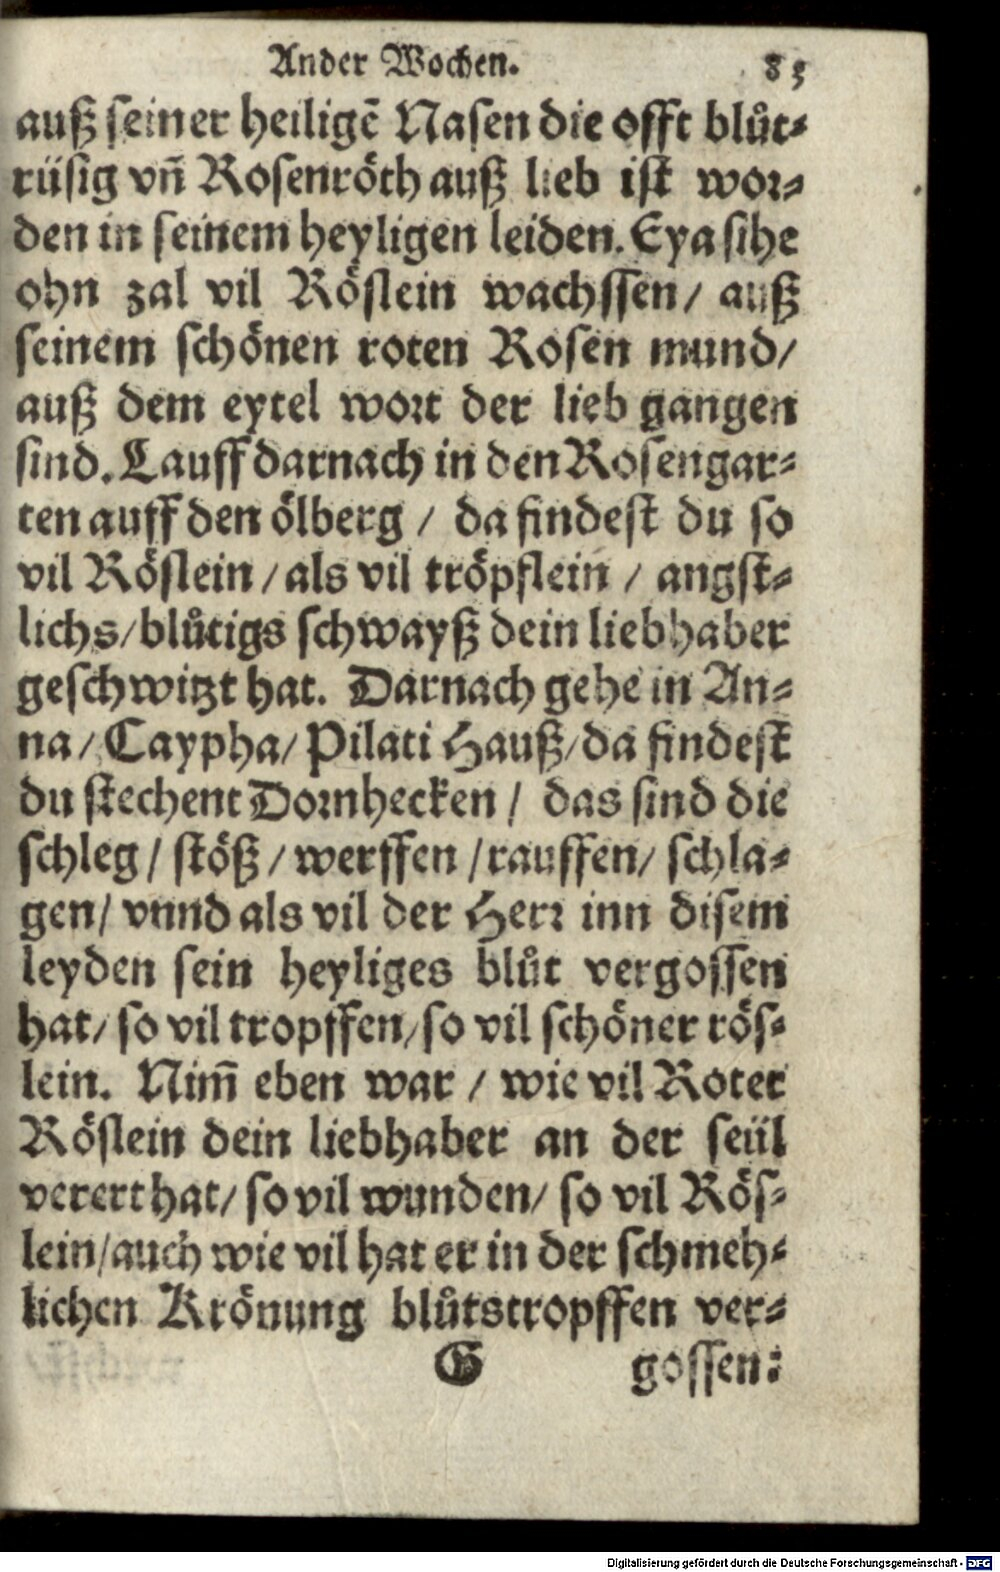 Ander Wochen. 83
auß seiner heiligē Nasen die offt blůt-
rüsig vñ Rosenröth auß lieb ist wor-
den in seinem heyligen leiden. Eya sihe
ohn zal vil Röslein wachssen/ auß
seinem schönen roten Rosen mund/
auß dem eytel wort der lieb gangen
sind. Lauff darnach in den Rosengar-
ten auff den ölberg / da findest du so
vil Röslein / als vil tröpflein / angst-
lichs/ blůtigs schwayß dein liebhaber
geschwitzt hat. Darnach gehe in An-
na/ Caypha/ Pilati Hauß/ da findest
du stechent Dornhecken / das sind die
schleg / stöß / werffen / rauffen/ schla-
gen/ vnnd als vil der Herr inn disem
leyden sein heyliges blůt vergossen
hat/ so vil tropffen/ so vil schöner rös-
lein. Nim̄ eben war / wie vil Roter
Röslein dein liebhaber an der seül
vererthat/ so vil wunden/ so vil Rös-
lein/ auch wie vil hat er in der schmeh-
lichen Krönung blůtstropffen ver-
G gossen:
Digitalisierung gefördert durch die Deutsche Forschungsgemeinschaft - DFG